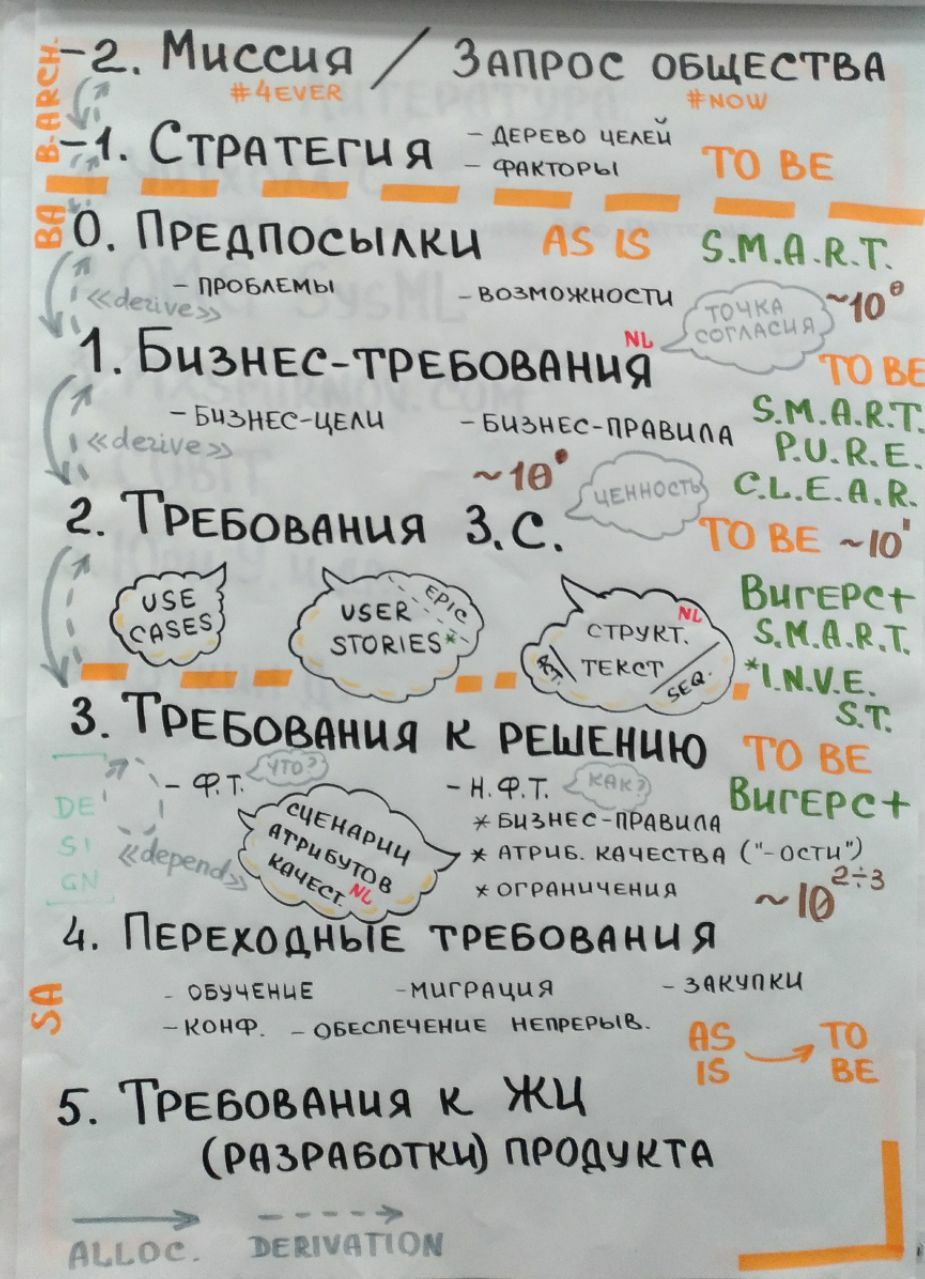 B-ARCH.
-2. Миссия / Запрос общества
#4EVER #NOW
-1. Стратегия
- дерево целей
- факторы
TO BE
BA
0. Предпосылки AS IS S.M.A.R.T.
- проблемы - возможности
~10⁰
«derive»
точка
согласия
NL
1. Бизнес-требования TO BE
- бизнес-цели - бизнес-правила
S.M.A.R.T.
P.U.R.E.
C.L.E.A.R.
«derive»
~10⁰
ценность
2. Требования З.С. TO BE ~10¹
USE
CASES
USER
STORIES*
EPIC
NL
структ.
текст
SEQ.
Вигерс+
S.M.A.R.T.
*I.N.V.E.
S.T.
3. Требования к решению TO BE
Вигерс+
- Ф.Т. что?
- Н.Ф.Т. как?
* бизнес-правила
* атриб. качества ("-ости")
* ограничения
~10²÷³
DE
SI
GN
«depend»
сценарии
атрибутов
качест. NL
4. Переходные требования
SA
- обучение - миграция - закупки
- конф. - обеспечение непрерыв.
AS IS TO BE
5. Требования к ЖЦ
(разработки) продукта
ALLOC. DERIVATION